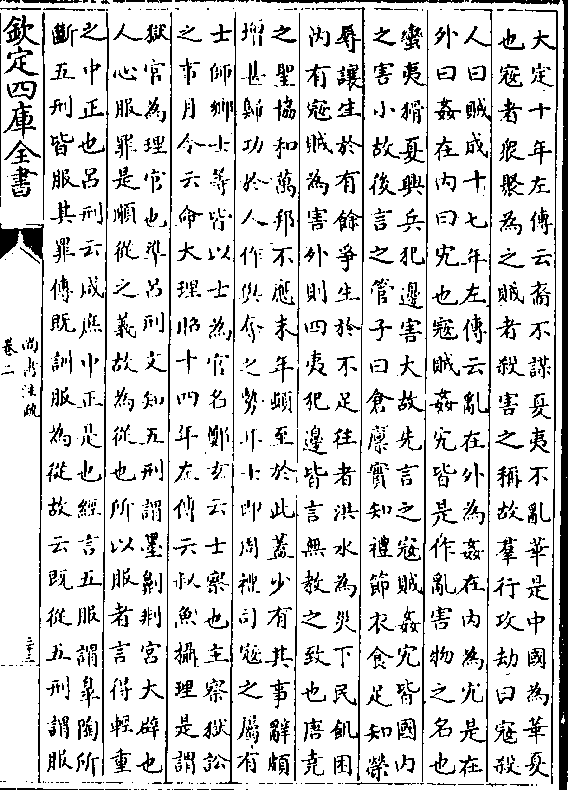 大定十年左傳云裔不謀夏夷不亂華是中國為華夏
也寇者衆聚為之賊者殺害之稱故羣行攻劫曰寇殺
人曰賊成十七年左傳云亂在外為姦在内為宄是在
外曰姦在内曰宄也寇賊姦宄皆是作亂害物之名也
蠻夷猾夏興兵犯邊害大故先言之寇賊姦宄皆國内
之害小故後言之管子曰倉廩實知禮節衣食足知榮
辱讓生於有餘爭生於不足往者洪水為災下民飢困
内有寇賊為害外則四夷犯邊皆言無教之致也唐堯
之聖協和萬邦不應末年頓至於此蓋少有其事辭頗
增甚歸功於人作與奪之勢耳士即周禮司寇之屬有
士師鄉士等皆以士為官名鄭玄云士察也主察獄訟
之事月令云命大理昭十四年左傳云叔魚攝理是謂
獄官為理官也準呂刑文知五刑謂墨劓剕宮大辟也
人心服罪是順從之義故為從也所以服者言得輕重
之中正也呂刑云咸庶中正是也經言五服謂皋陶所
斷五刑皆服其罪傳既訓服為從故云既從五刑謂服
欽定四庫全書
尚書注疏
卷二
二十三